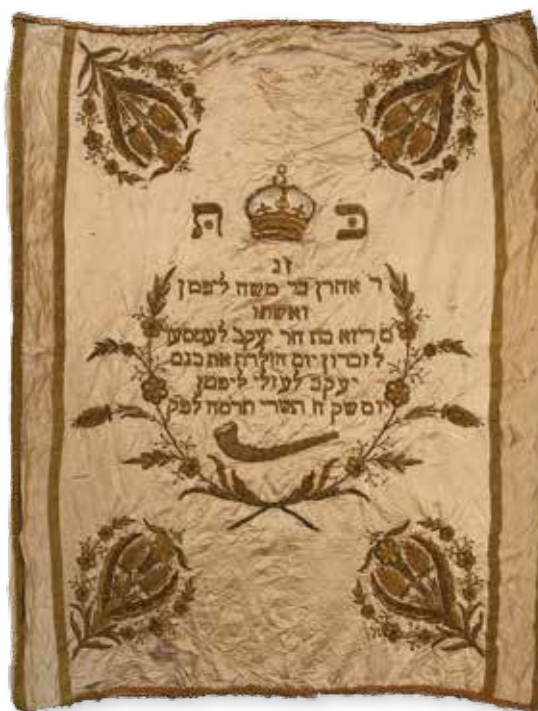 כ ת
ז נ
ר אהרן בר משה ליפמן
ואשתו
מ ריזא בת הר יעקב
לזכרון יום הולדת את בנם
יעקב לעזלי ליפמן
יום שק ח תשרי תרמה לפק